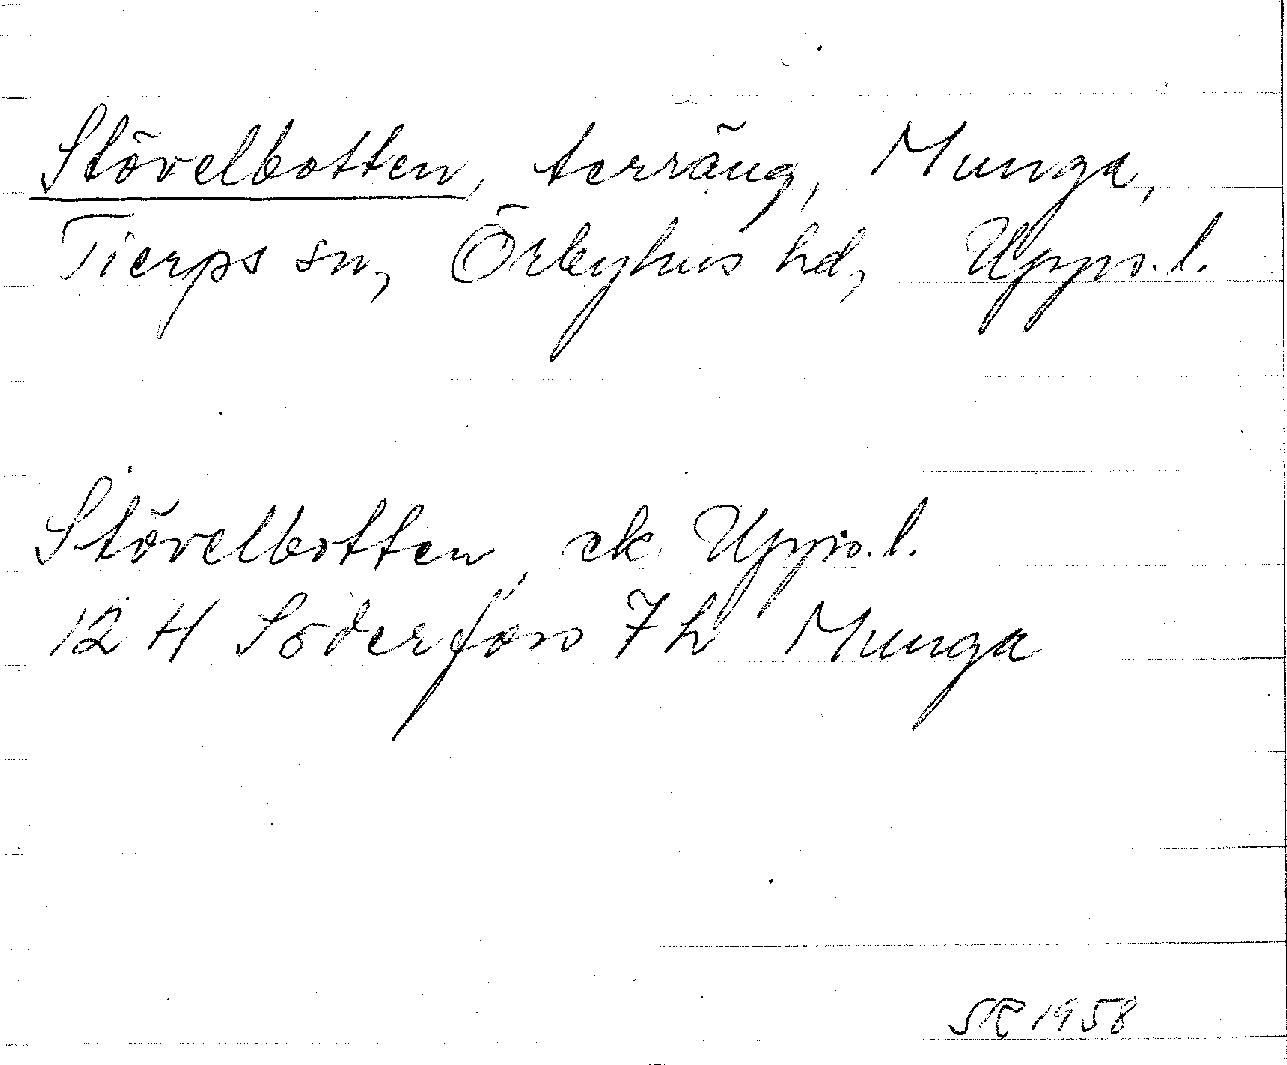 Stövelbotten, terräng, Munga,
Tierps sn, Örbyhus hd, Upps. l.
Stövelbotten, ek Upps. l.
12 H Söderfors 7 h Munga
SR 1958